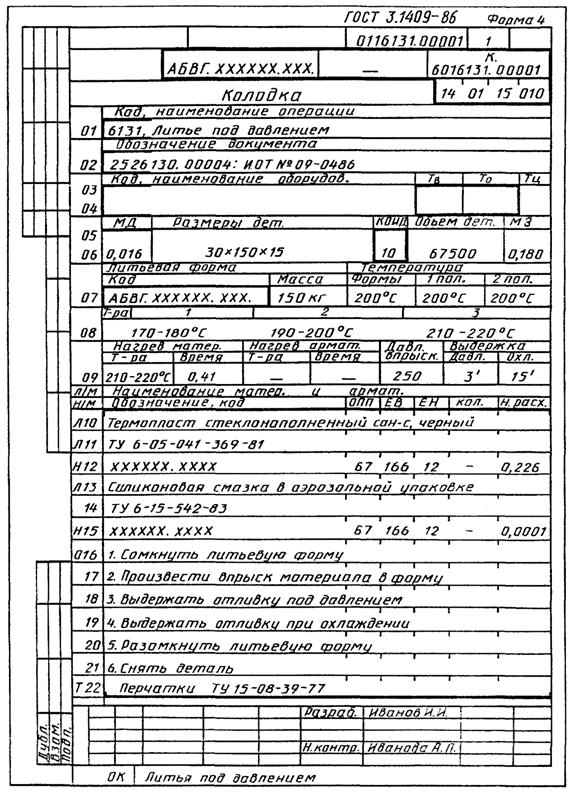 ГОСТ 3.1409-86 Форма 4
0116131.00001 1
АБВГ. XXXXXX.XXX. — К. 6016131.00001
Колодка 14 01 15 010
Код, наименование операции
01 6131, Литье под давлением
Обозначение документа
02 2526130. 00004: ИОТ №09-0486
Код, наименование оборудов. Тв То Тц
03
04
МД Размеры дет. КОИД Объем дет. МЗ
05
06 0,016 30×150×15 10 67500 0,180
Литьевая форма Температура
Код Масса Формы 1 пол. 2 пол.
07 АБВГ. XXXXXX. XXX. 150 кг 200°С 200°С 200°С
Т-ра 1 2 3
08 170-180°С 190-200°С 210-220°С
Нагрев матер. Нагрев армат. Давл. впрыск. Выдержка
Т-ра Время Т-ра Время Давл. Охл.
09 210-220°С 0,41 — — 250 3' 15'
Л/М Наименование матер. и армат.
Н/М Обозначение, код ОПП ЕВ ЕН кол. Н.расх.
Л10 Термопласт стеклонаполненный сан-с, черный
Л11 ТУ 6-05-041-369-81
Н12 XXXXXX. XXXX 67 166 12 – 0,226
Л13 Силиконовая смазка в аэрозольной упаковке
14 ТУ 6-15-542-83
Н15 XXXXXX. XXXX 67 166 12 – 0,0001
О16 1. Сомкнуть литьевую форму
17 2. Произвести впрыск материала в форму
18 3. Выдержать отливку под давлением
19 4. Выдержать отливку при охлаждении
20 5. Разомкнуть литьевую форму
21 6. Снять деталь
Т22 Перчатки ТУ 15-08-39-77
Разраб. Иванов И.И.
Н.контр. Иванова А.П.
Дубл.
Взам.
Подп.
ОК Литья под давлением